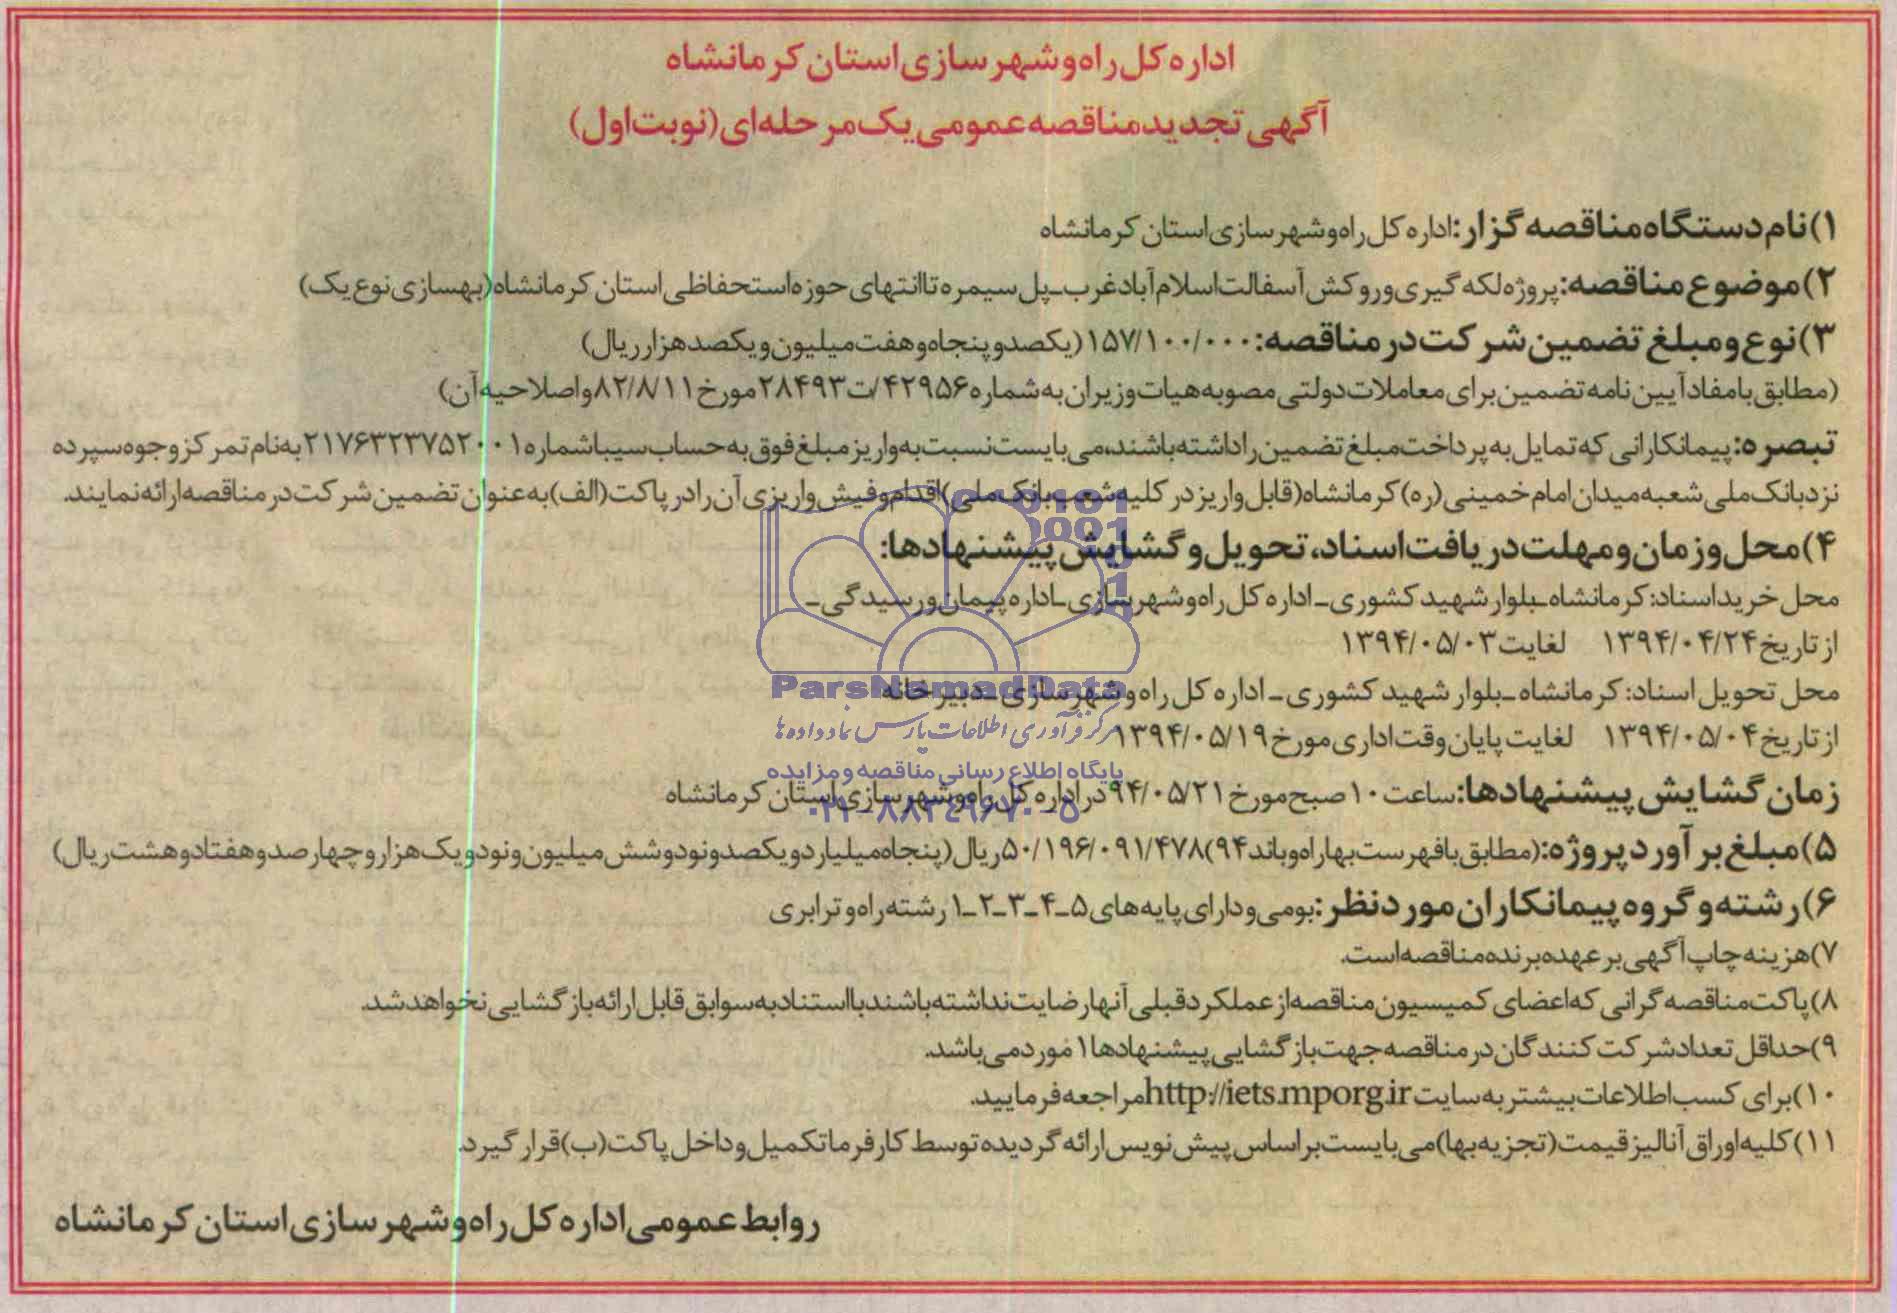 اداره کل راه و شهرسازی استان کرمانشاه
آگهی تجدید مناقصه عمومی یک مرحله‌ای (نوبت اول)
۱) نام دستگاه مناقصه گزار: اداره کل راه و شهرسازی استان کرمانشاه
۲) موضوع مناقصه: پروژه لکه گیری و روکش آسفالت اسلام آباد غرب ـ پل سیمره تا انتهای حوزه استحفاظی استان کرمانشاه (بهسازی نوع یک)
۳) نوع و مبلغ تضمین شرکت در مناقصه: ۱۵۷/۱۰۰/۰۰۰ (یکصد و پنجاه و هفت میلیون و یکصد هزار ریال)
(مطابق با مفاد آیین نامه تضمین برای معاملات دولتی مصوبه هیات وزیران به شماره ۴۲۹۵۶/ت۲۸۴۹۳ مورخ ۸۲/۸/۱۱ و اصلاحیه آن)
تبصره: پیمانکارانی که تمایل به پرداخت مبلغ تضمین را داشته باشند، می بایست نسبت به واریز مبلغ فوق به حساب سیبا شماره ۲۱۷۶۳۲۳۷۵۲۰۰۱ به نام تمرکز وجوه سپرده
نزد بانک ملی شعبه میدان امام خمینی (ره) کرمانشاه (قابل واریز در کلیه شعب بانک ملی) اقدام و فیش واریزی آن را در پاکت (الف) به عنوان تضمین شرکت در مناقصه ارائه نمایند.
۴) محل و زمان و مهلت دریافت اسناد، تحویل و گشایش پیشنهادها:
محل خرید اسناد: کرمانشاه ـ بلوار شهید کشوری ـ اداره کل راه و شهرسازی ـ اداره پیمان و رسیدگی ـ
از تاریخ ۱۳۹۴/۰۴/۲۴ لغایت ۱۳۹۴/۰۵/۰۳
محل تحویل اسناد: کرمانشاه ـ بلوار شهید کشوری ـ اداره کل راه و شهرسازی ـ دبیرخانه
از تاریخ ۱۳۹۴/۰۵/۰۴ لغایت پایان وقت اداری مورخ ۱۳۹۴/۰۵/۱۹
زمان گشایش پیشنهادها: ساعت ۱۰ صبح مورخ ۹۴/۰۵/۲۱ در اداره کل راه و شهرسازی استان کرمانشاه
۵) مبلغ برآورد پروژه: (مطابق با فهرست بها راه و باند ۹۴) ۵۰/۱۹۶/۰۹۱/۴۷۸ ریال (پنجاه میلیارد و یکصد و نود و شش میلیون و نود و یک هزار و چهارصد و هفتاد و هشت ریال)
۶) رشته و گروه پیمانکاران مورد نظر: بومی و دارای پایه های ۵ـ۴ـ۳ـ۲ـ۱ رشته راه و ترابری
۷) هزینه چاپ آگهی بر عهده برنده مناقصه است.
۸) پاکت مناقصه گرانی که اعضای کمیسیون مناقصه از عملکرد قبلی آنها رضایت نداشته باشند با استناد به سوابق قابل ارائه بازگشایی نخواهد شد.
۹) حداقل تعداد شرکت کنندگان در مناقصه جهت بازگشایی پیشنهادها ۱ مورد می باشد.
۱۰) برای کسب اطلاعات بیشتر به سایت http://iets.mporg.ir مراجعه فرمایید.
۱۱) کلیه اوراق آنالیز قیمت (تجزیه بها) می بایست بر اساس پیش نویس ارائه گردیده توسط کارفرما تکمیل و داخل پاکت (ب) قرار گیرد.
روابط عمومی اداره کل راه و شهرسازی استان کرمانشاه
ParsNamadData
مرکز فرآوری اطلاعات پارس نماد داده ها
پایگاه اطلاع رسانی مناقصه و مزایده
۰۲۱-۸۸۳۴۹۶۷۰-۵